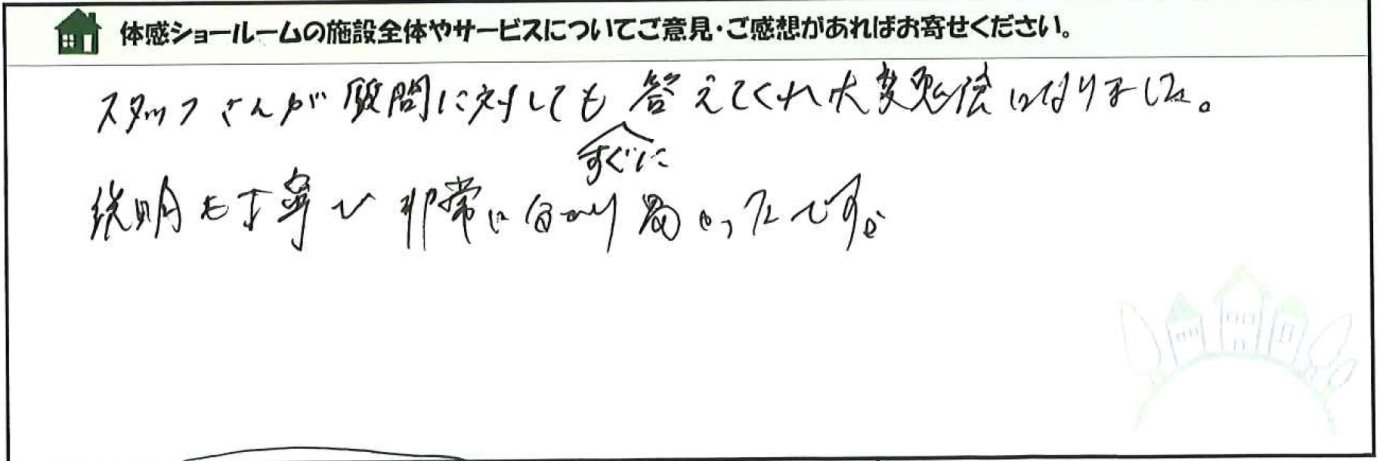 体感ショールームの施設全体やサービスについてご意見・ご感想があればお寄せください。
スタッフさんが質問に対してもすぐに答えてくれ大変勉強になりました。
説明も丁寧で非常に分かり易かったです。